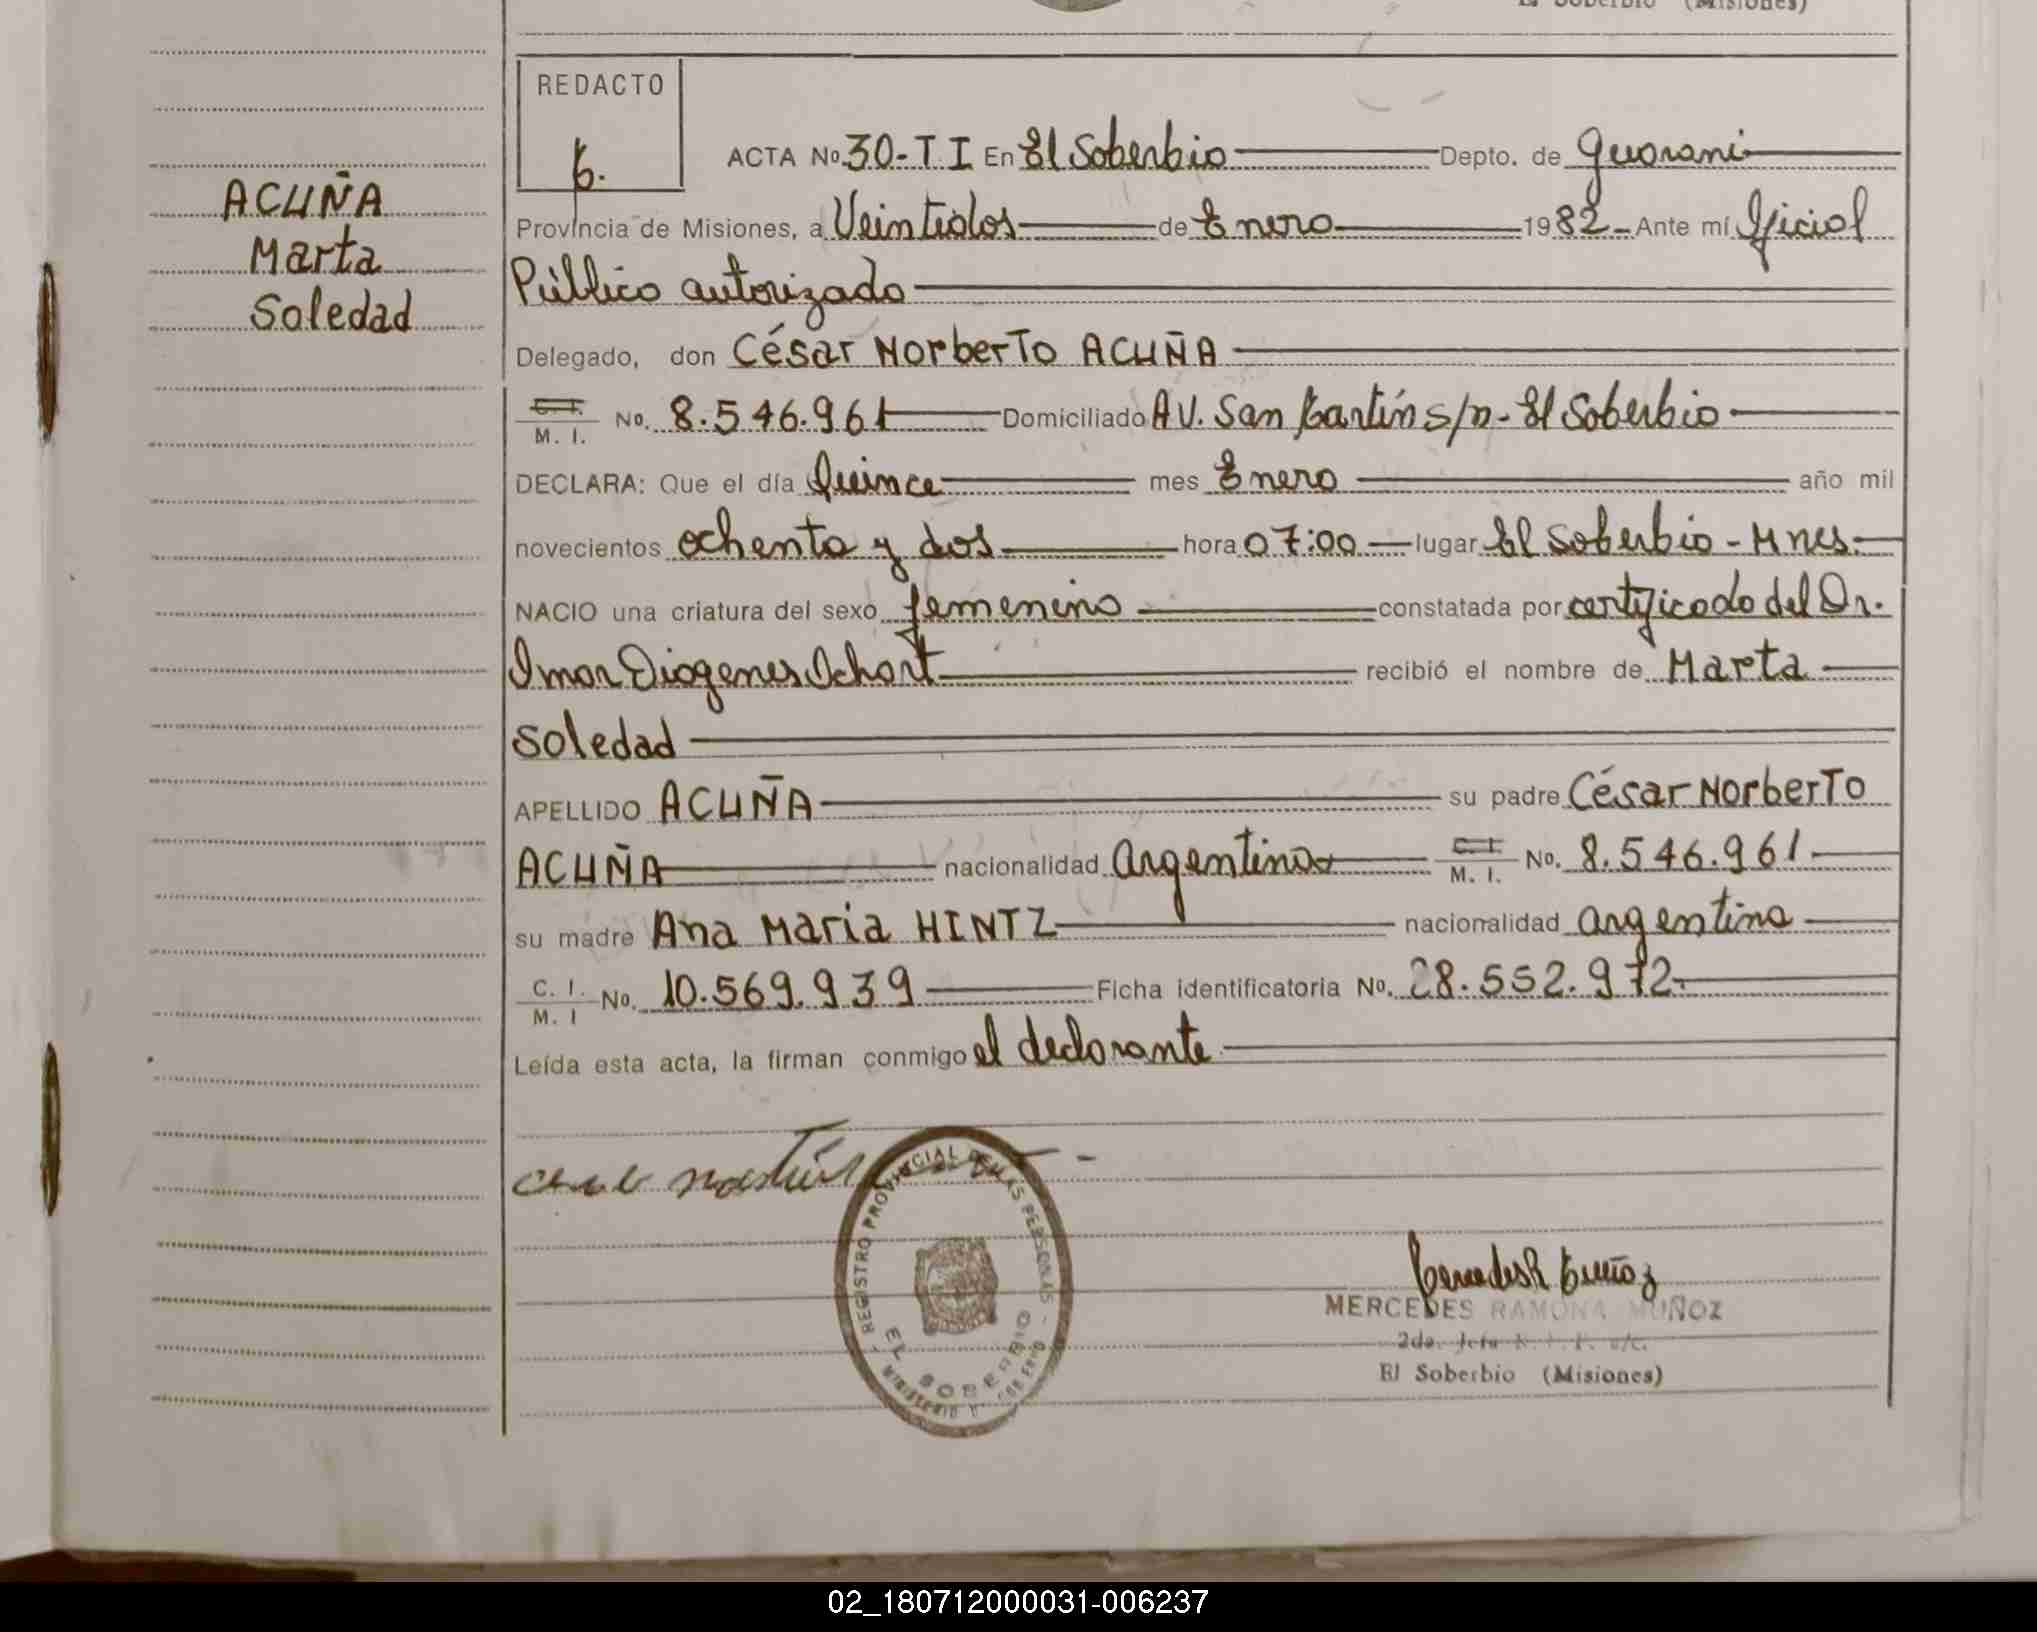 El Soberbio (Misiones)
REDACTO
ACTA No. 30-T. I En El Soberbio Depto. de Guarani
ACUÑA
Marta
Soledad
Provincia de Misiones, a Veintidos de Enero 1982 - Ante mí Oficial
Público autorizado
Delegado, don César Norberto ACUÑA
C. I.
M. I. No. 8.546.961 Domiciliado AV. San Martín s/n - El Soberbio
DECLARA: Que el día Quince mes Enero año mil
novecientos ochenta y dos hora 07:00 lugar El Soberbio - Mnes.
NACIO una criatura del sexo femenino constatada por certificado del Dr.
Diogenes recibió el nombre de Marta
Soledad
APELLIDO ACUÑA su padre César Norberto
ACUÑA nacionalidad argentina C. I.
M. I. No. 8.546.961
su madre Ana Maria HINTZ nacionalidad argentina
C. I.
M. I No. 10.569.939 Ficha identificatoria No. 28.552.972
Leída esta acta, la firman conmigo el declarante
REGISTRO PROVINCIAL DE LAS PERSONAS
EL SOBERBIO
MINISTERIO DE GOBIERNO
MERCEDES RAMONA MUÑOZ
2da. Jefe
El Soberbio (Misiones)
02_180712000031-006237